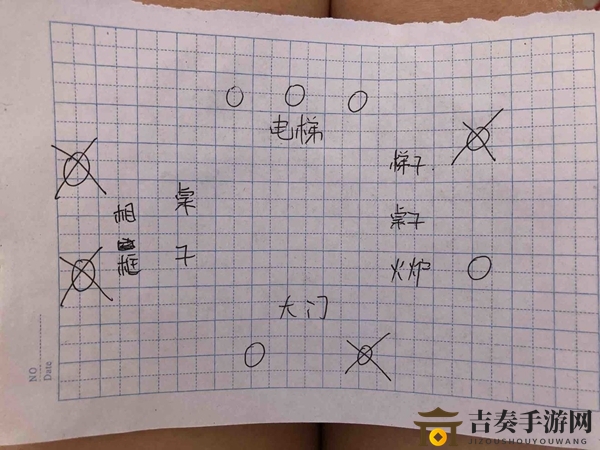 电梯
梯子
桌子
相框
桌子
火炉
大门
NO
Date
吉奏手游网
JIZOUSHOUYOUWANG